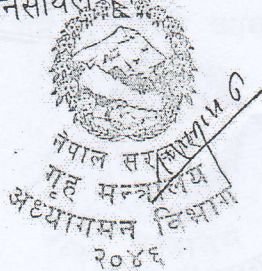 नेपाल सरकार
गृह मन्त्रालय
अध्यागमन विभाग
२०४६